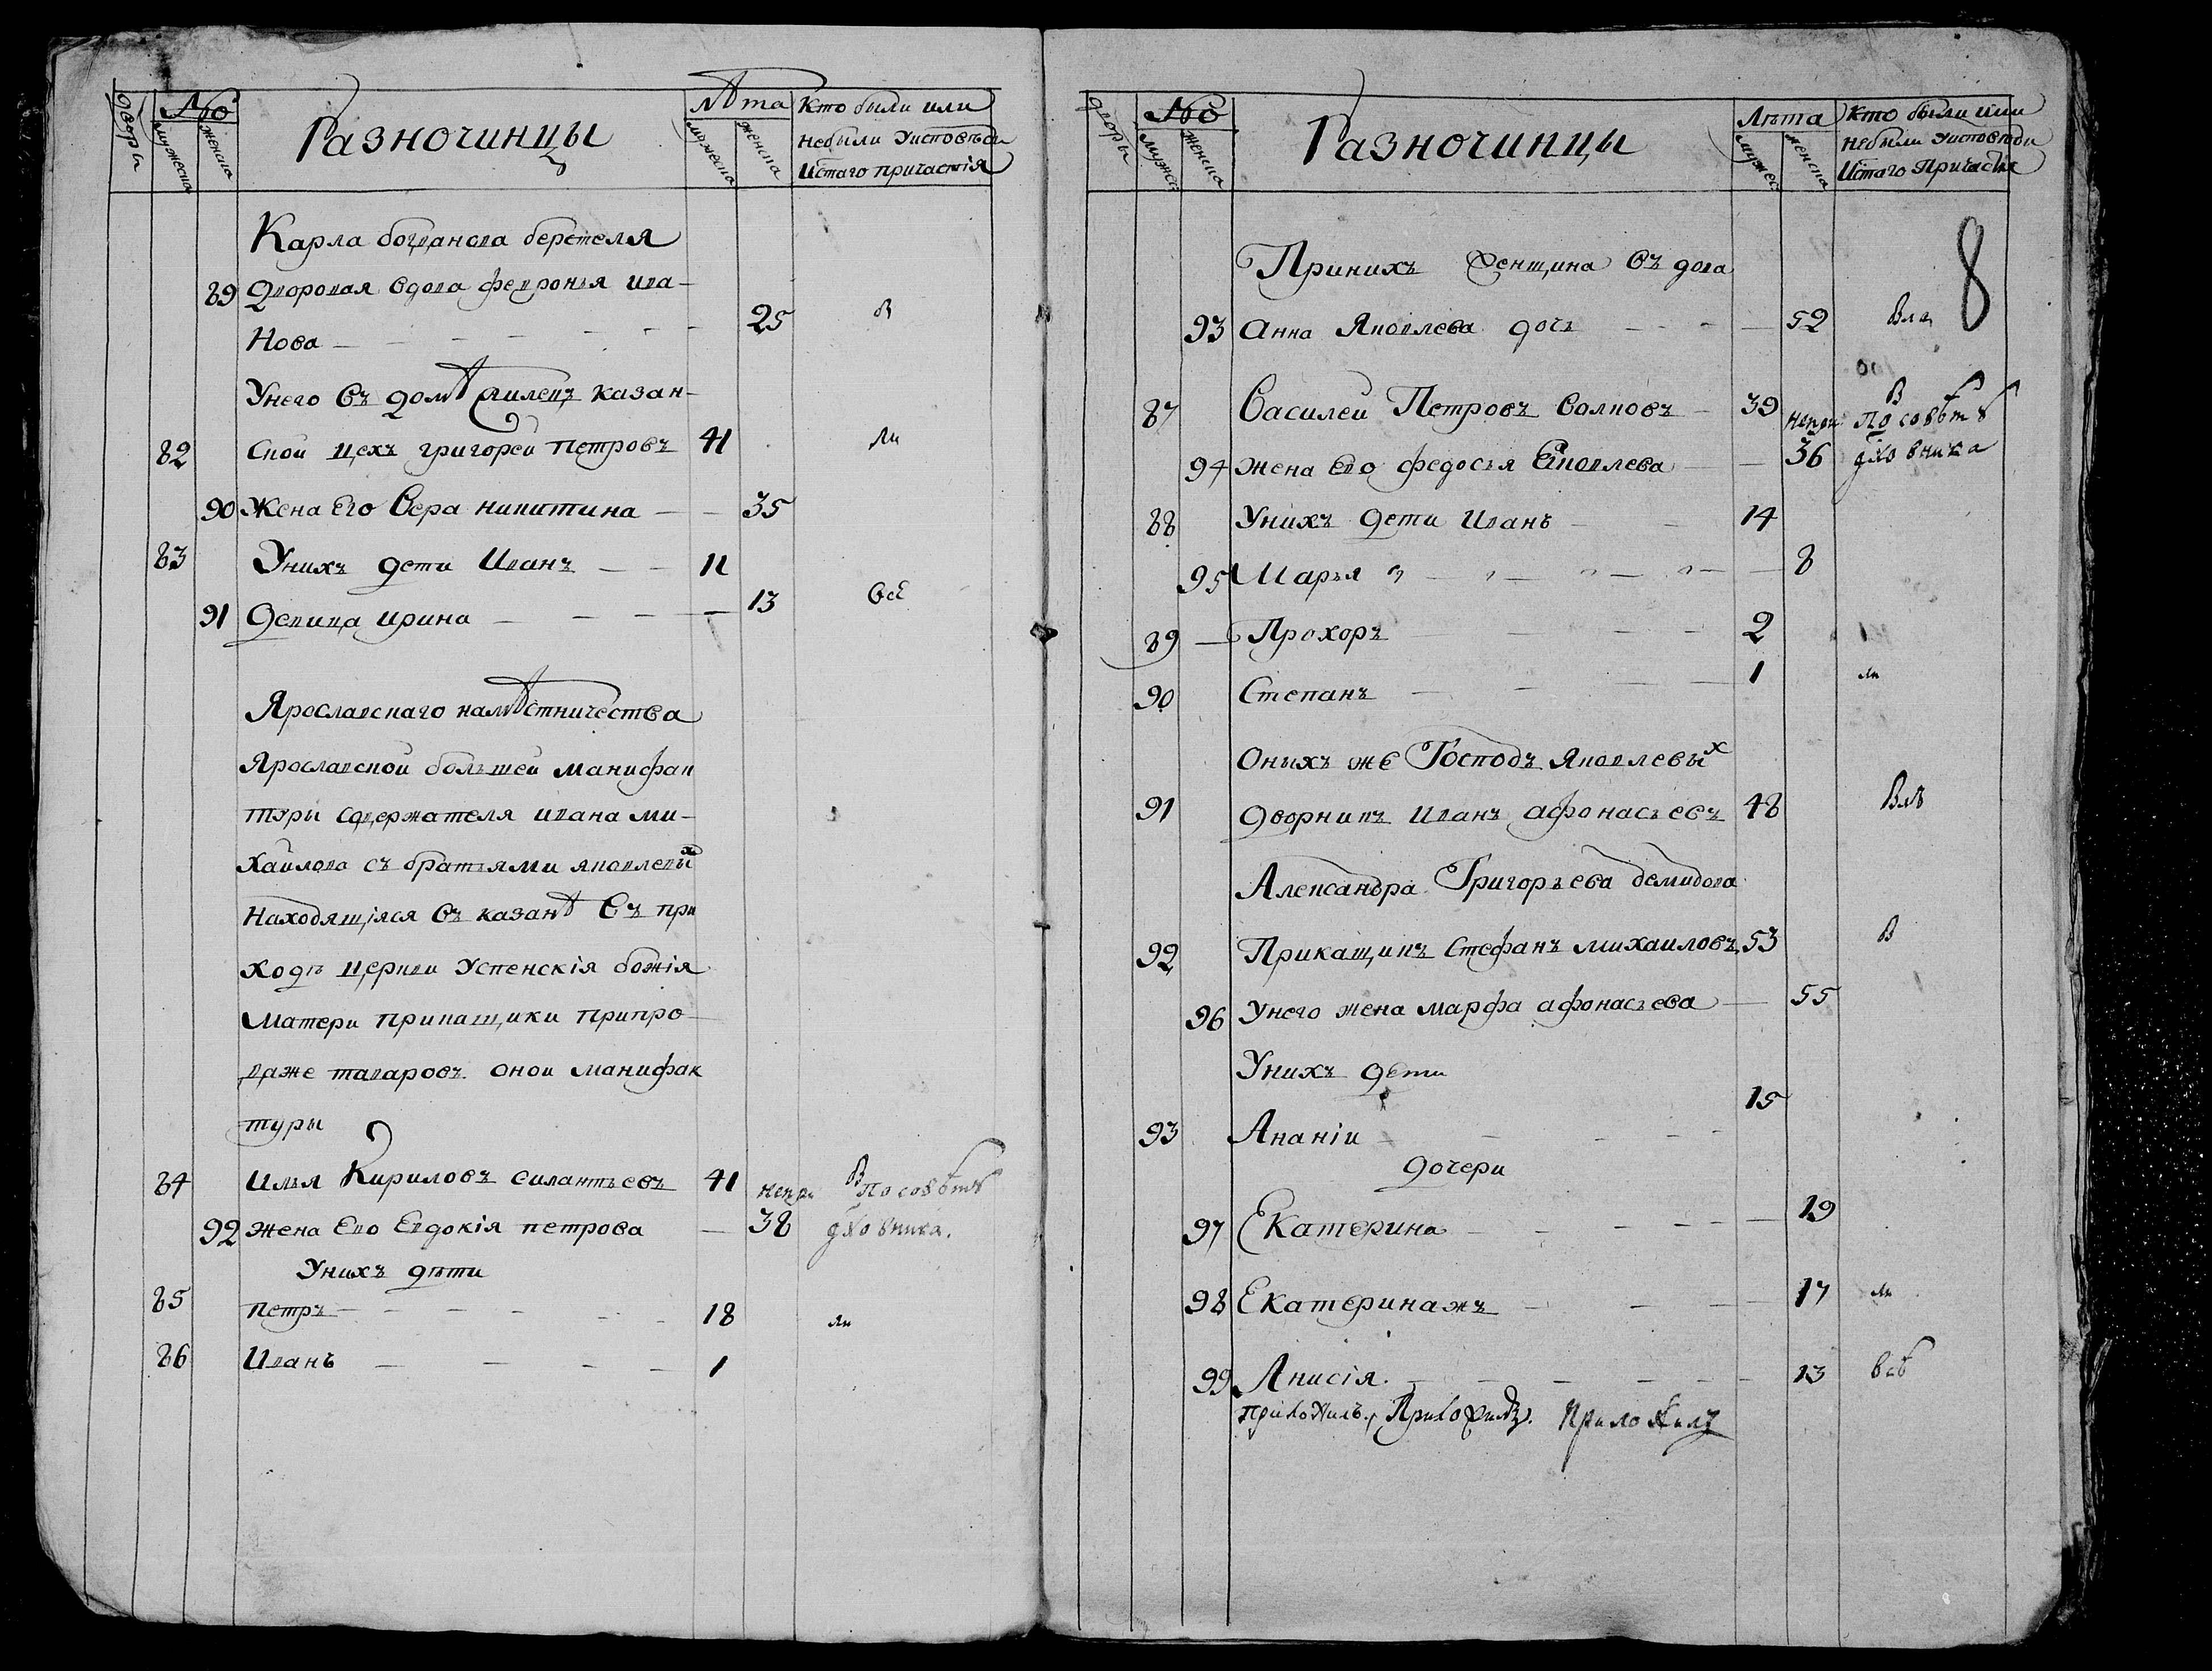 дворы № Разночинцы Лѣта Кто были или
мужеска женска мужеска женска небыли Уисповѣди
Истаго причастія
Карла богданова беретеля
89 Дворовая вдова февронья ива-
нова 25 В
Унего въ домѣ жилецъ казан-
82 ской цехъ григорей петровъ 41
90 Жена Его Вера никитина 35
83 Унихъ дети Иванъ 11
91 Девица ирина 13 всѣ
Ярославскаго намѣстничества
Ярославской большей манифак
туры содержателя ивана ми-
хаилова съ братьями яковлевых
Находящіяся въ казанѣ въ при
ходѣ церкви Успенскія божія
Матери прикащики припро
даже таваровъ оной манифак
туры
84 Илья Кириловъ силантьевъ 41 непри В По совѣтѣ
92 жена Ево Евдокія петрова 38 дховника.
Унихъ дѣти
85 петръ 18
86 Иванъ 1
дворы № Разночинцы Лѣта Кто были или
мужес женска мужес женска небыли Уисповѣди
Истаго Причастія
8
Принихъ женщина вдова
93 Анна Яковлева дочь 52
87 Василей Петровъ Волковъ 39 В
непри По совѣтѣ
94 жена Ево федосья Яковлева 36 дховника
88 Унихъ дети Иванъ 14
95 Марья 8
89 Прохоръ 2
90 Степанъ 1
Оныхъ же Господъ Яковлевых
91 Дворникъ Иванъ афонасьевъ 48
Александра Григорьева демидова
92 Прикащикъ Стефанъ михаиловъ 53 В
96 Унего жена марфа афонасьева 55
Унихъ дети
93 Ананіи 15
дочери
97 Екатерина 19
98 Екатеринажъ 17
99 Анисія 13 всѣ
приложилъ. Приложилъ. Приложилъ